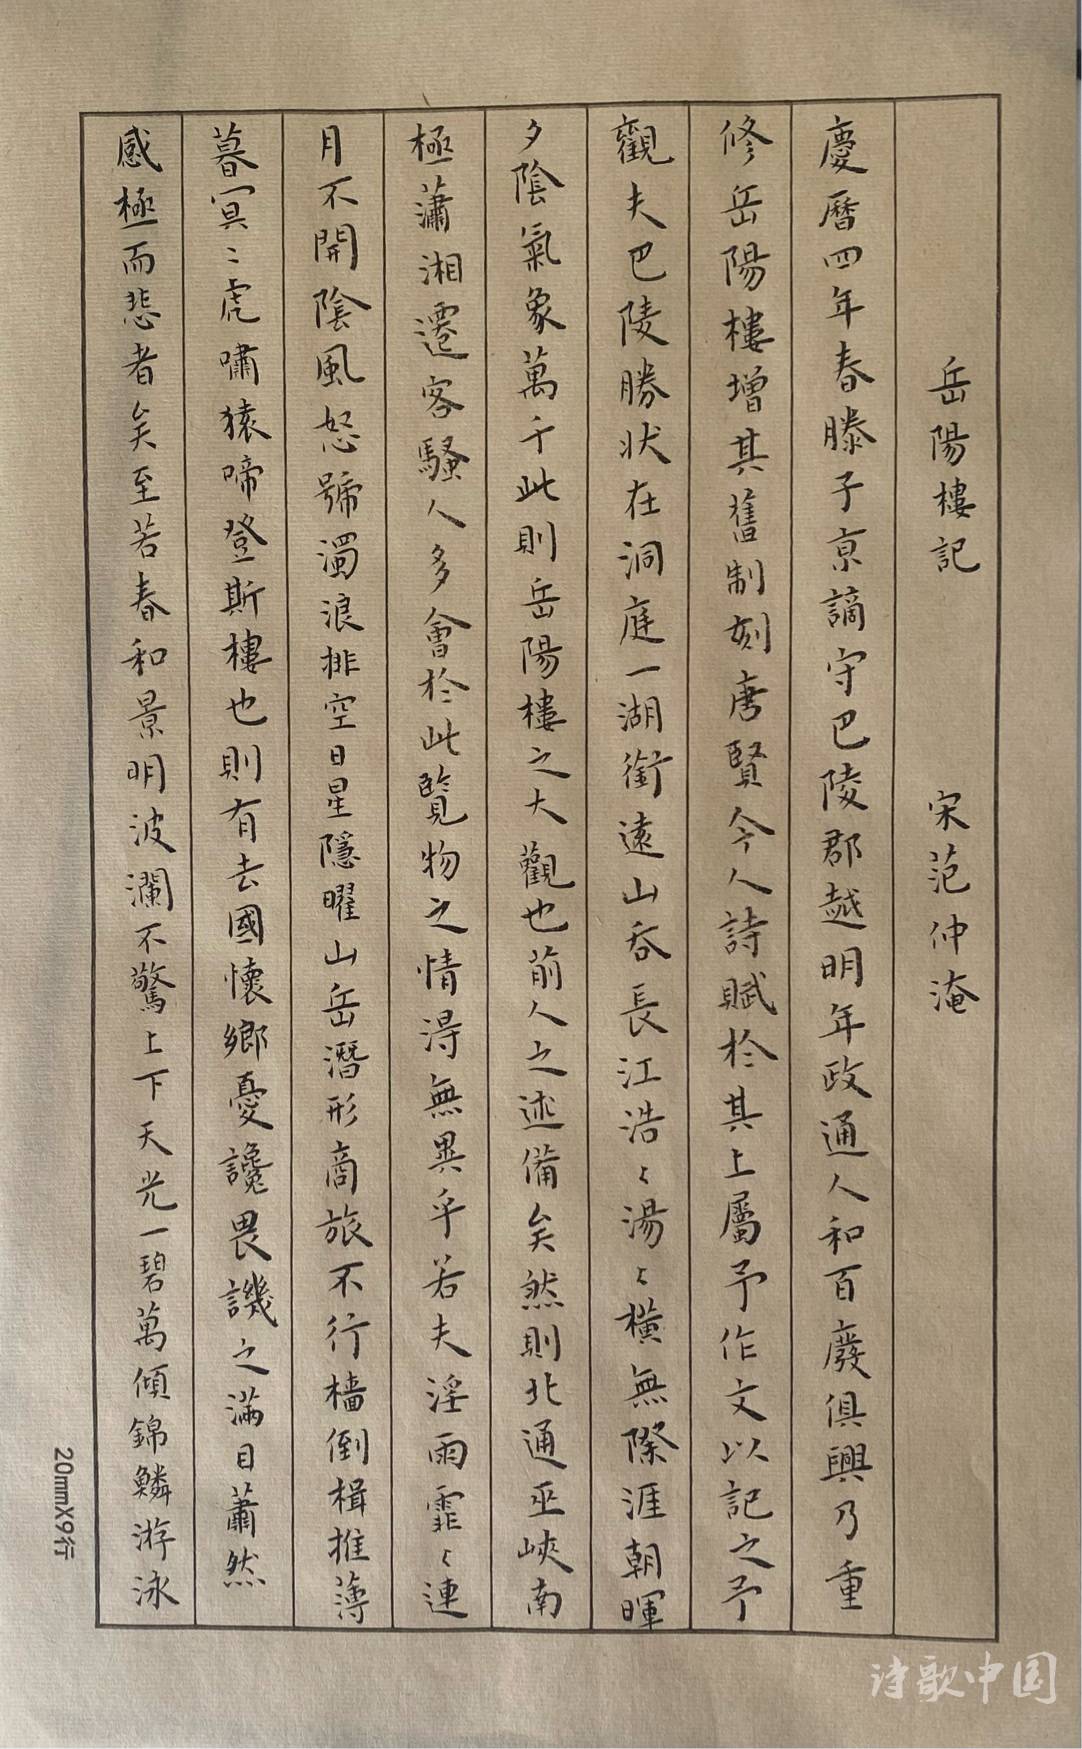 岳陽樓記 宋范仲淹
慶曆四年春滕子京謫守巴陵郡越明年政通人和百廢俱興乃重
修岳陽樓增其舊制刻唐賢今人詩賦於其上屬予作文以記之予
觀夫巴陵勝狀在洞庭一湖銜遠山吞長江浩々湯々橫無際涯朝暉
夕陰氣象萬千此則岳陽樓之大觀也前人之述備矣然則北通巫峽南
極瀟湘遷客騷人多會於此覽物之情得無異乎若夫淫雨霏々連
月不開陰風怒號濁浪排空日星隱曜山岳潛形商旅不行檣倒楫摧薄
暮冥々虎嘯猿啼登斯樓也則有去國懷鄉憂讒畏譏之滿目蕭然
感極而悲者矣至若春和景明波瀾不驚上下天光一碧萬傾錦鱗游泳
20mmX9行
诗歌中国